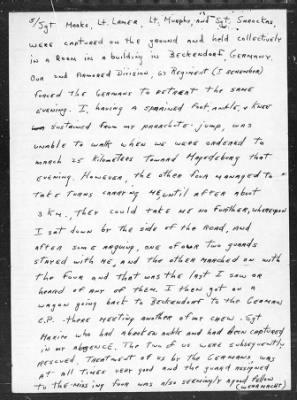 S/Sgt Meeks, Lt. Lamer, Lt. Murphy, and Sgt. Snrockas,
were captured on the ground and held collectively
in a room in a building in Beckendorf, Germany.
Our 2nd Armored Division, 67 Regiment (I remember)
forced the Germans to retreat the same
evening. I, having a sprained foot, ankle, & knee
sustained from my parachute jump, was
unable to walk when we were ordered to
march 25 kilometers toward Magedeburg that
evening. However, the other four managed to
take turns carring me, until after about
3 km., they could take me no further, whereupon
I sat down by the side of the road, and
after some arguing, one of our two guards
stayed with me, and the other marched on with
the four and that was the last I saw or
heard of any of them. I then got on a
wagon going back to Beckendorf to the German
C.P. there meeting another of my crew. Sgt
who had a broken ankle and had been captured
in my absence. The two of us were subsequently
rescued. Treatment of us by the Germans, was
at all times very good and the guard assigned
to the missing four was also seemingly a good fellow
(Wehrmacht)